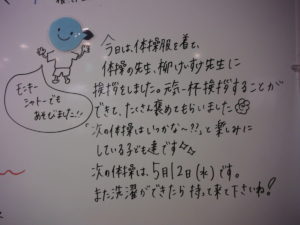 今日は、体操服を着て、
体操の先生、柳けいすけ先生に
挨拶をしました。元気一杯挨拶することが
できて、たくさん褒めてもらいました
「次の体操はいつかな〜??」と楽しみに
している子ども達です
次の体操は、5月12日(水)です。
また洗濯ができたら持って来て下さいね!
モンキー
シャトーでも
あそびました!!